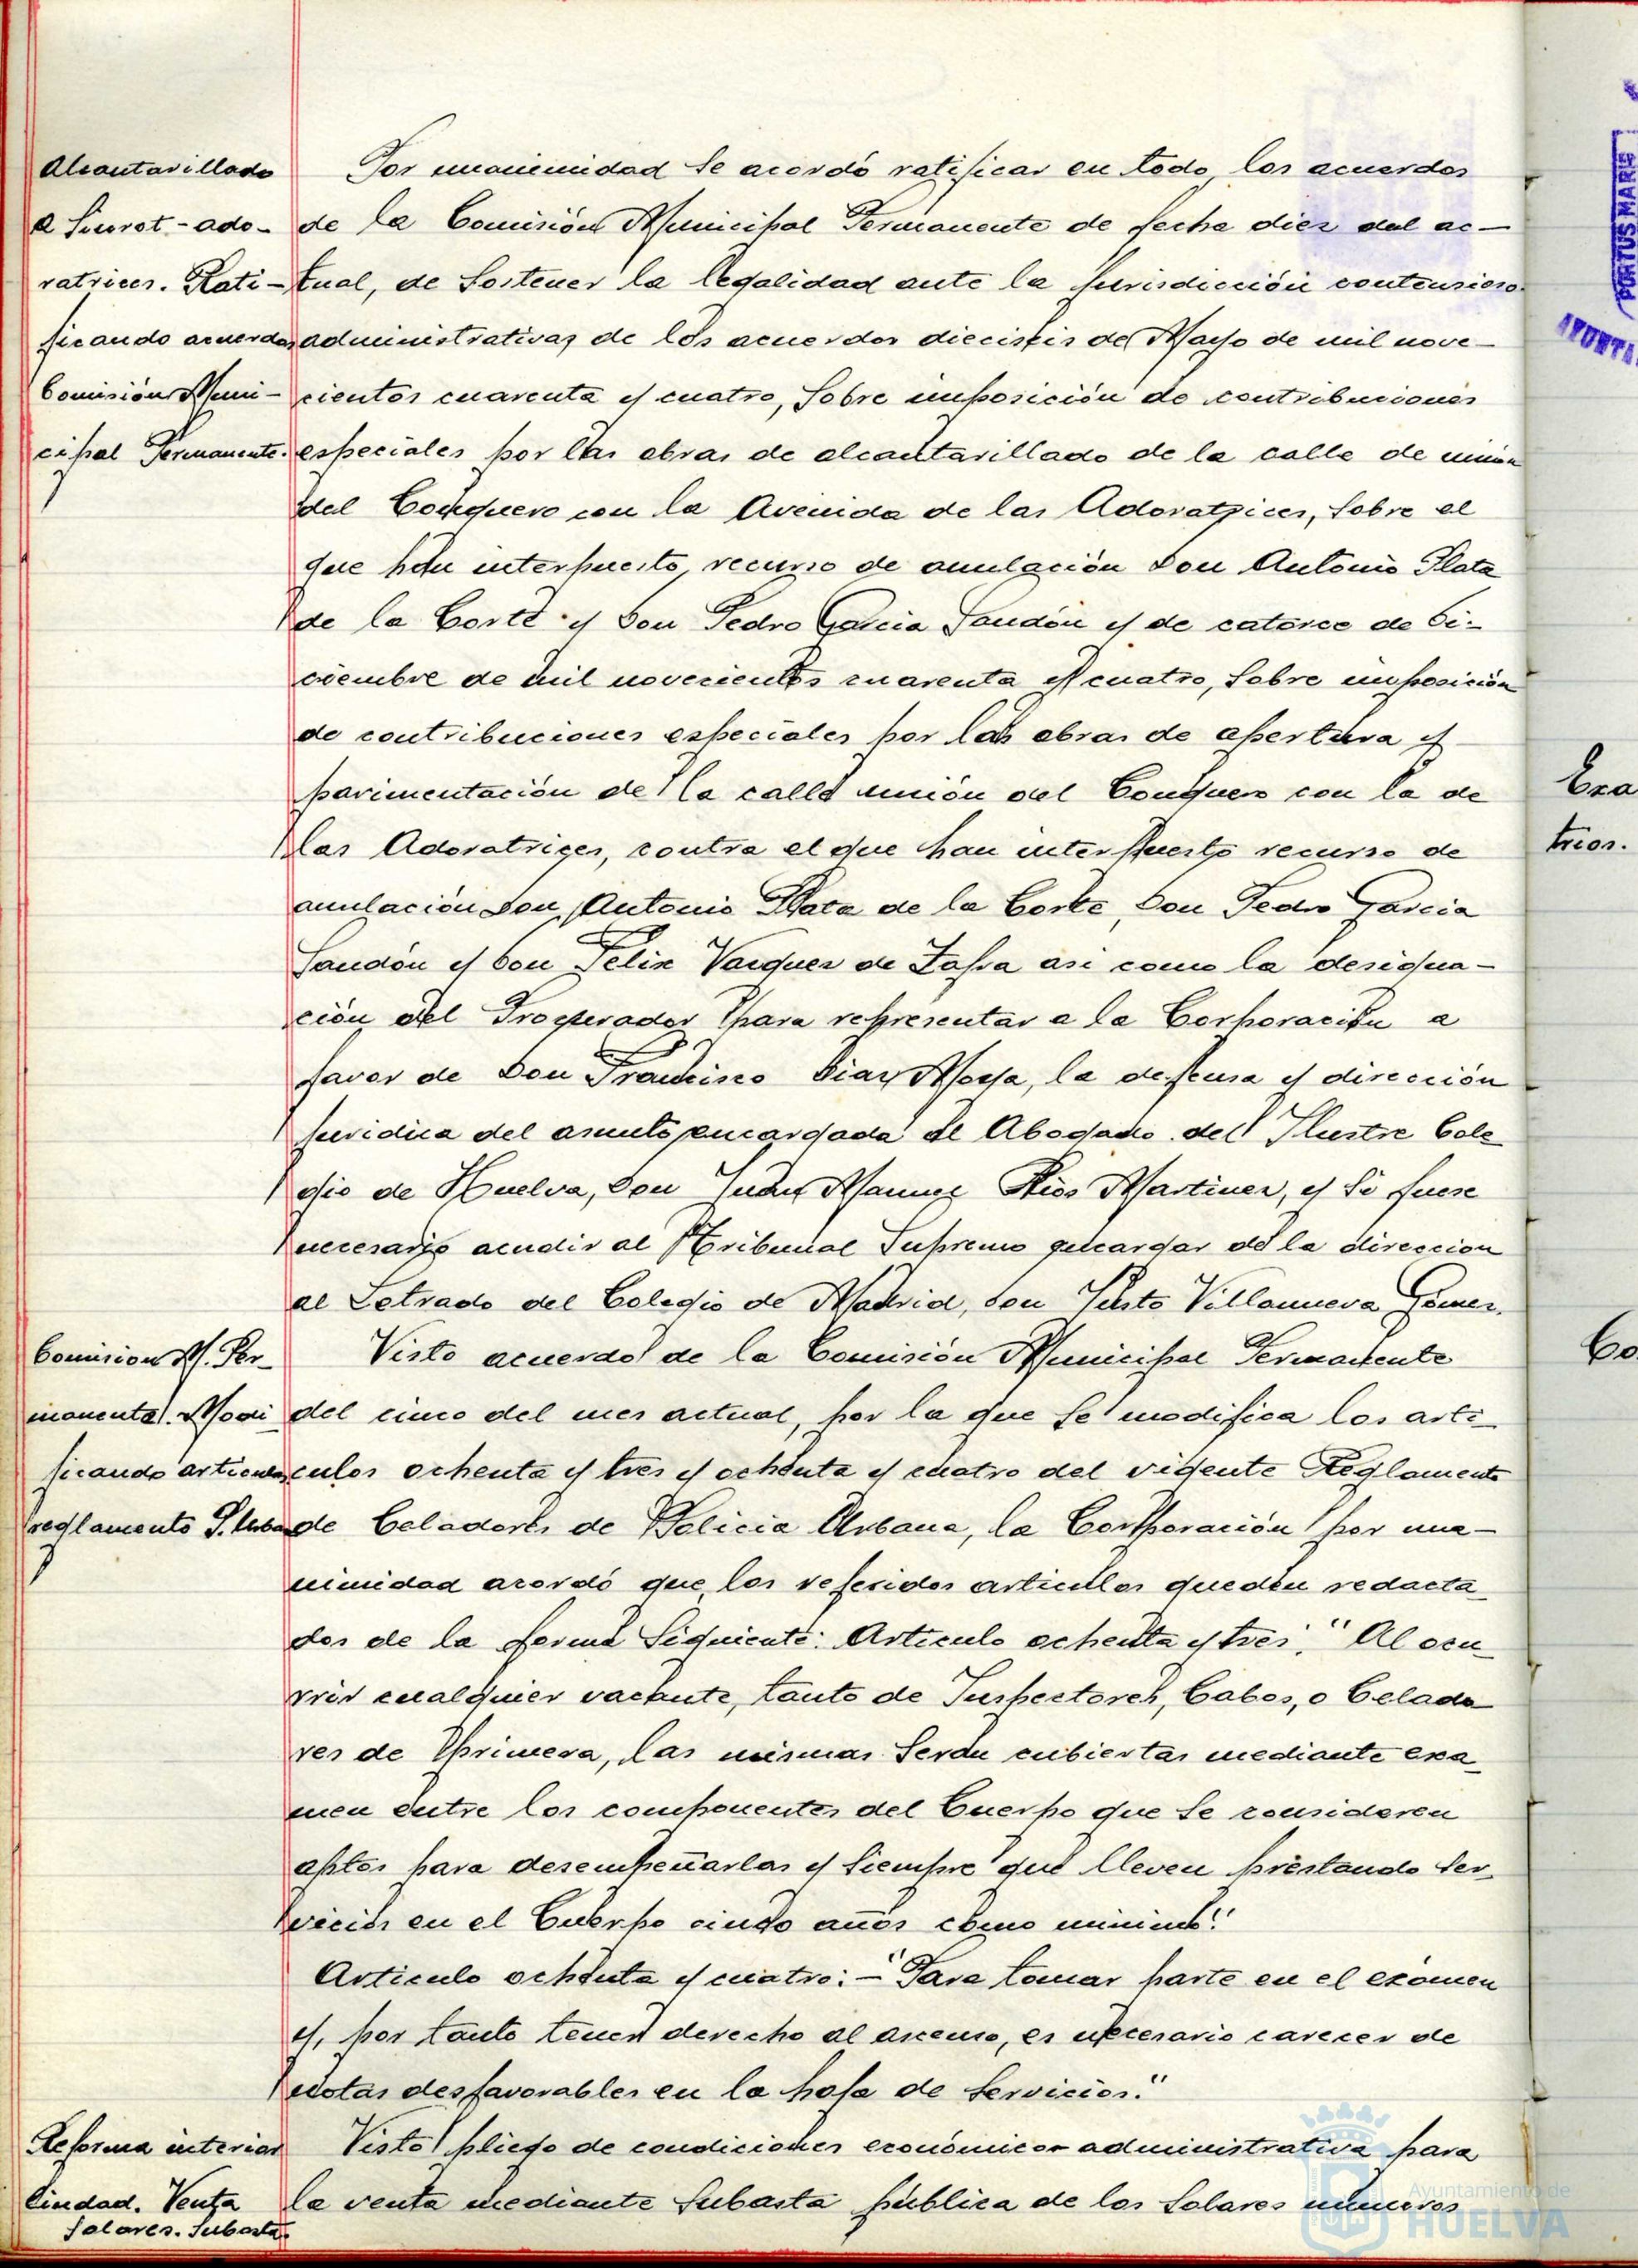 Alcantarillado
a Siurot-ado-
ratrices. Rati-
ficando acuerdos
Comisión Muni-
cipal Permanente.
Por unanimidad se acordó ratificar en todo, los acuerdos
de la Comisión Municipal Permanente de fecha diez del ac-
tual, de sostener la legalidad ante la jurisdicción contensioso-
administrativas de los acuerdos dieciseis de Mayo de mil nove-
cientos cuarenta y cuatro, sobre imposición de contribuciones
especiales por las obras de alcantarillado de la calle de unión
del Conquero con la Avenida de las Adoratrices, sobre el
que han interpuesto, recurso de anulación Don Antonio Plata
de la Corte y Don Pedro Garcia Jaudón y de catorce de Di-
ciembre de mil novecientos cuarenta y cuatro, sobre imposición
de contribuciones especiales por las obras de apertura y
pavimentación de la calle unión del Conquero con la de
las Adoratrices, contra el que han interpuesto recurso de
anulación Don Antonio Plata de la Corte, Don Pedro Garcia
Jaudón y Don Felix Vazquez de Zafra asi como la designa-
ción del Procurador para representar a la Corporación a
favor de Don Francisco Diaz Moya, la defensa y dirección
juridica del asunto encargada al Abogado del Ilustre Cole
gio de Huelva, Don Juan Manuel Rios Martinez, y si fuese
necesario acudir al Tribunal Supremo encargar de la direccion
al Letrado del Colegio de Madrid, Don Justo Villanueva Gómez.
Comision M. Per-
manente. Modi
ficando articulos
reglamento P. Urbana
Visto acuerdo de la Comisión Municipal Permanente
del cinco del mes actual, por la que se modifica los arti-
culos ochenta y tres y ochenta y cuatro del vigente Reglamento
de Celadores de Policia Urbana, la Corporación por una-
nimidad acordó que los referidos articulos queden redacta-
dos de la forma siguiente: Articulo ochenta y tres: "Al ocu-
rrir cualquier vacante, tanto de Inspectores, Cabos, o Celado-
res de Primera, las mismas serán cubiertas mediante exa-
men entre los componentes del Cuerpo que se consideren
aptos para desempeñarlas y siempre que lleven prestando ser-
vicios en el Cuerpo cinco años como minimo".
Articulo ochenta y cuatro:- "Para tomar parte en el exámen
y, por tanto tener derecho al ascenso, es necesario carecer de
notas desfavorables en la hoja de servicios."
Reforma interior
Ciudad. Venta
solares. Subasta.
Visto pliego de condiciones económicor administrativa para
la venta mediante subasta pública de los solares números
PORTUS MARIS
AYUNTA
Exa
trios.
Co
Ayuntamiento de
HUELVA